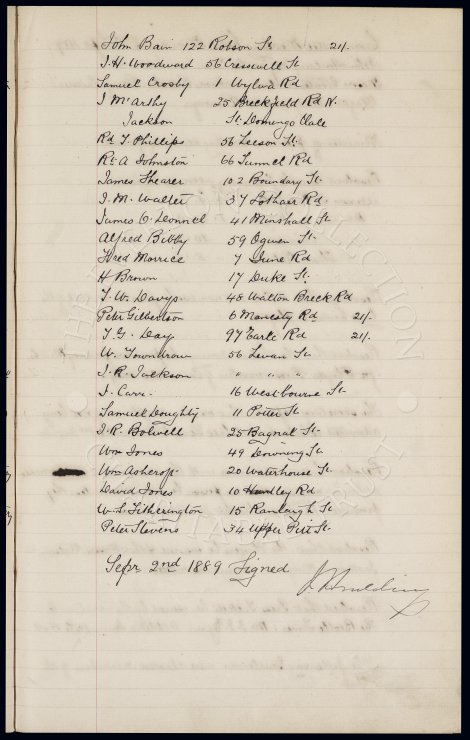 John Bain 122 Robson St 21/.
J. H. Woodward 56 Cresswell St
Samuel Crosby 1 Wylva Rd
J McArthy 25 Breckfield Rd N.
Jackson St. Domingo Vale
Rd T. Phillips 56 Leeson St.
Rt. A Johnston 66 Tunnel Rd
James Shearer 102 Boundary St.
J. M. Walter 37 Lothair Rd.
James O. Donnel 41 Minshall St.
Alfred Bibby 59 Ogwen St.
Fred Morrice 7 June Rd
H Brown 17 Duke St.
T. W. Davys 48 Walton Breck Rd
Peter Gilbertson 6 Manesty Rd 21/.
T. G. Day 97 Earle Rd 21/.
W. Towndrow 56 St.
J. R. Jackson " " "
J. Carr. 16 Westbourne St.
Samuel Doughty 11 Potter St
J. R. Bolwell 25 Bagnal St.
Wm Jones 49 Downing St.
Wm Ashcroft 20 Waterhouse St.
David Jones 10 Handley Rd
W. S. Titherington 15 Ranleagh St
Peter Stevens 34 Upper Pitt St.
Sepr 2nd 1889 Signed
J. Houlding
THE COLLECTION
TRUST